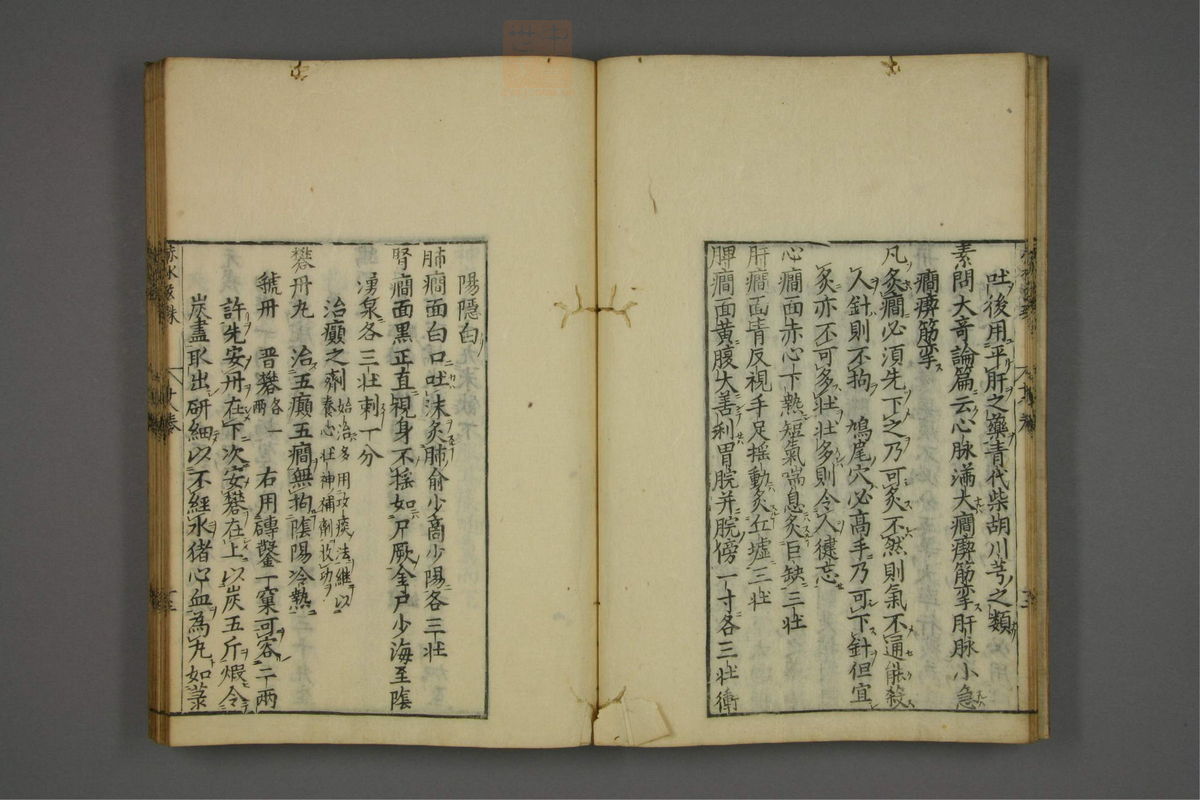 吐後用平肝之藥青代柴胡川芎之類
素問大奇論篇云心脉滿大癇瘛筋攣肝脉小急
癇瘛筋攣
凡灸癇必須先下之乃可灸不然則氣不通能殺
人針則不拘　鳩尾穴必高手乃可下針但宜
灸亦不可多壯壯多則令人健忘
心癇面赤心下熱短氣喘息灸巨缺三壯
肝癇面青反視手足揺動灸丘墟三壯
脾癇面黄腹大善利胃脘并脘傍一寸各三壯衝
陽隠白
肺癇面白口吐沫灸肺俞少商少陽各三壯
腎癇面黒正直視身不揺如尸厥金戸少海至陰
湧泉各三壯刺一分
治癲之劑 始治多用攻痰法維以養心壯神補劑收功
礬丹丸　治五癲五癇無拘陰陽冷熱
號丹　晋礬各一兩　右用磚鑿一窠可容二兩
許先安丹在下次安礬在上以炭五斤煆令
炭盡取出研細以不經水猪心血為丸如菉
赤水玄珠
十八巻